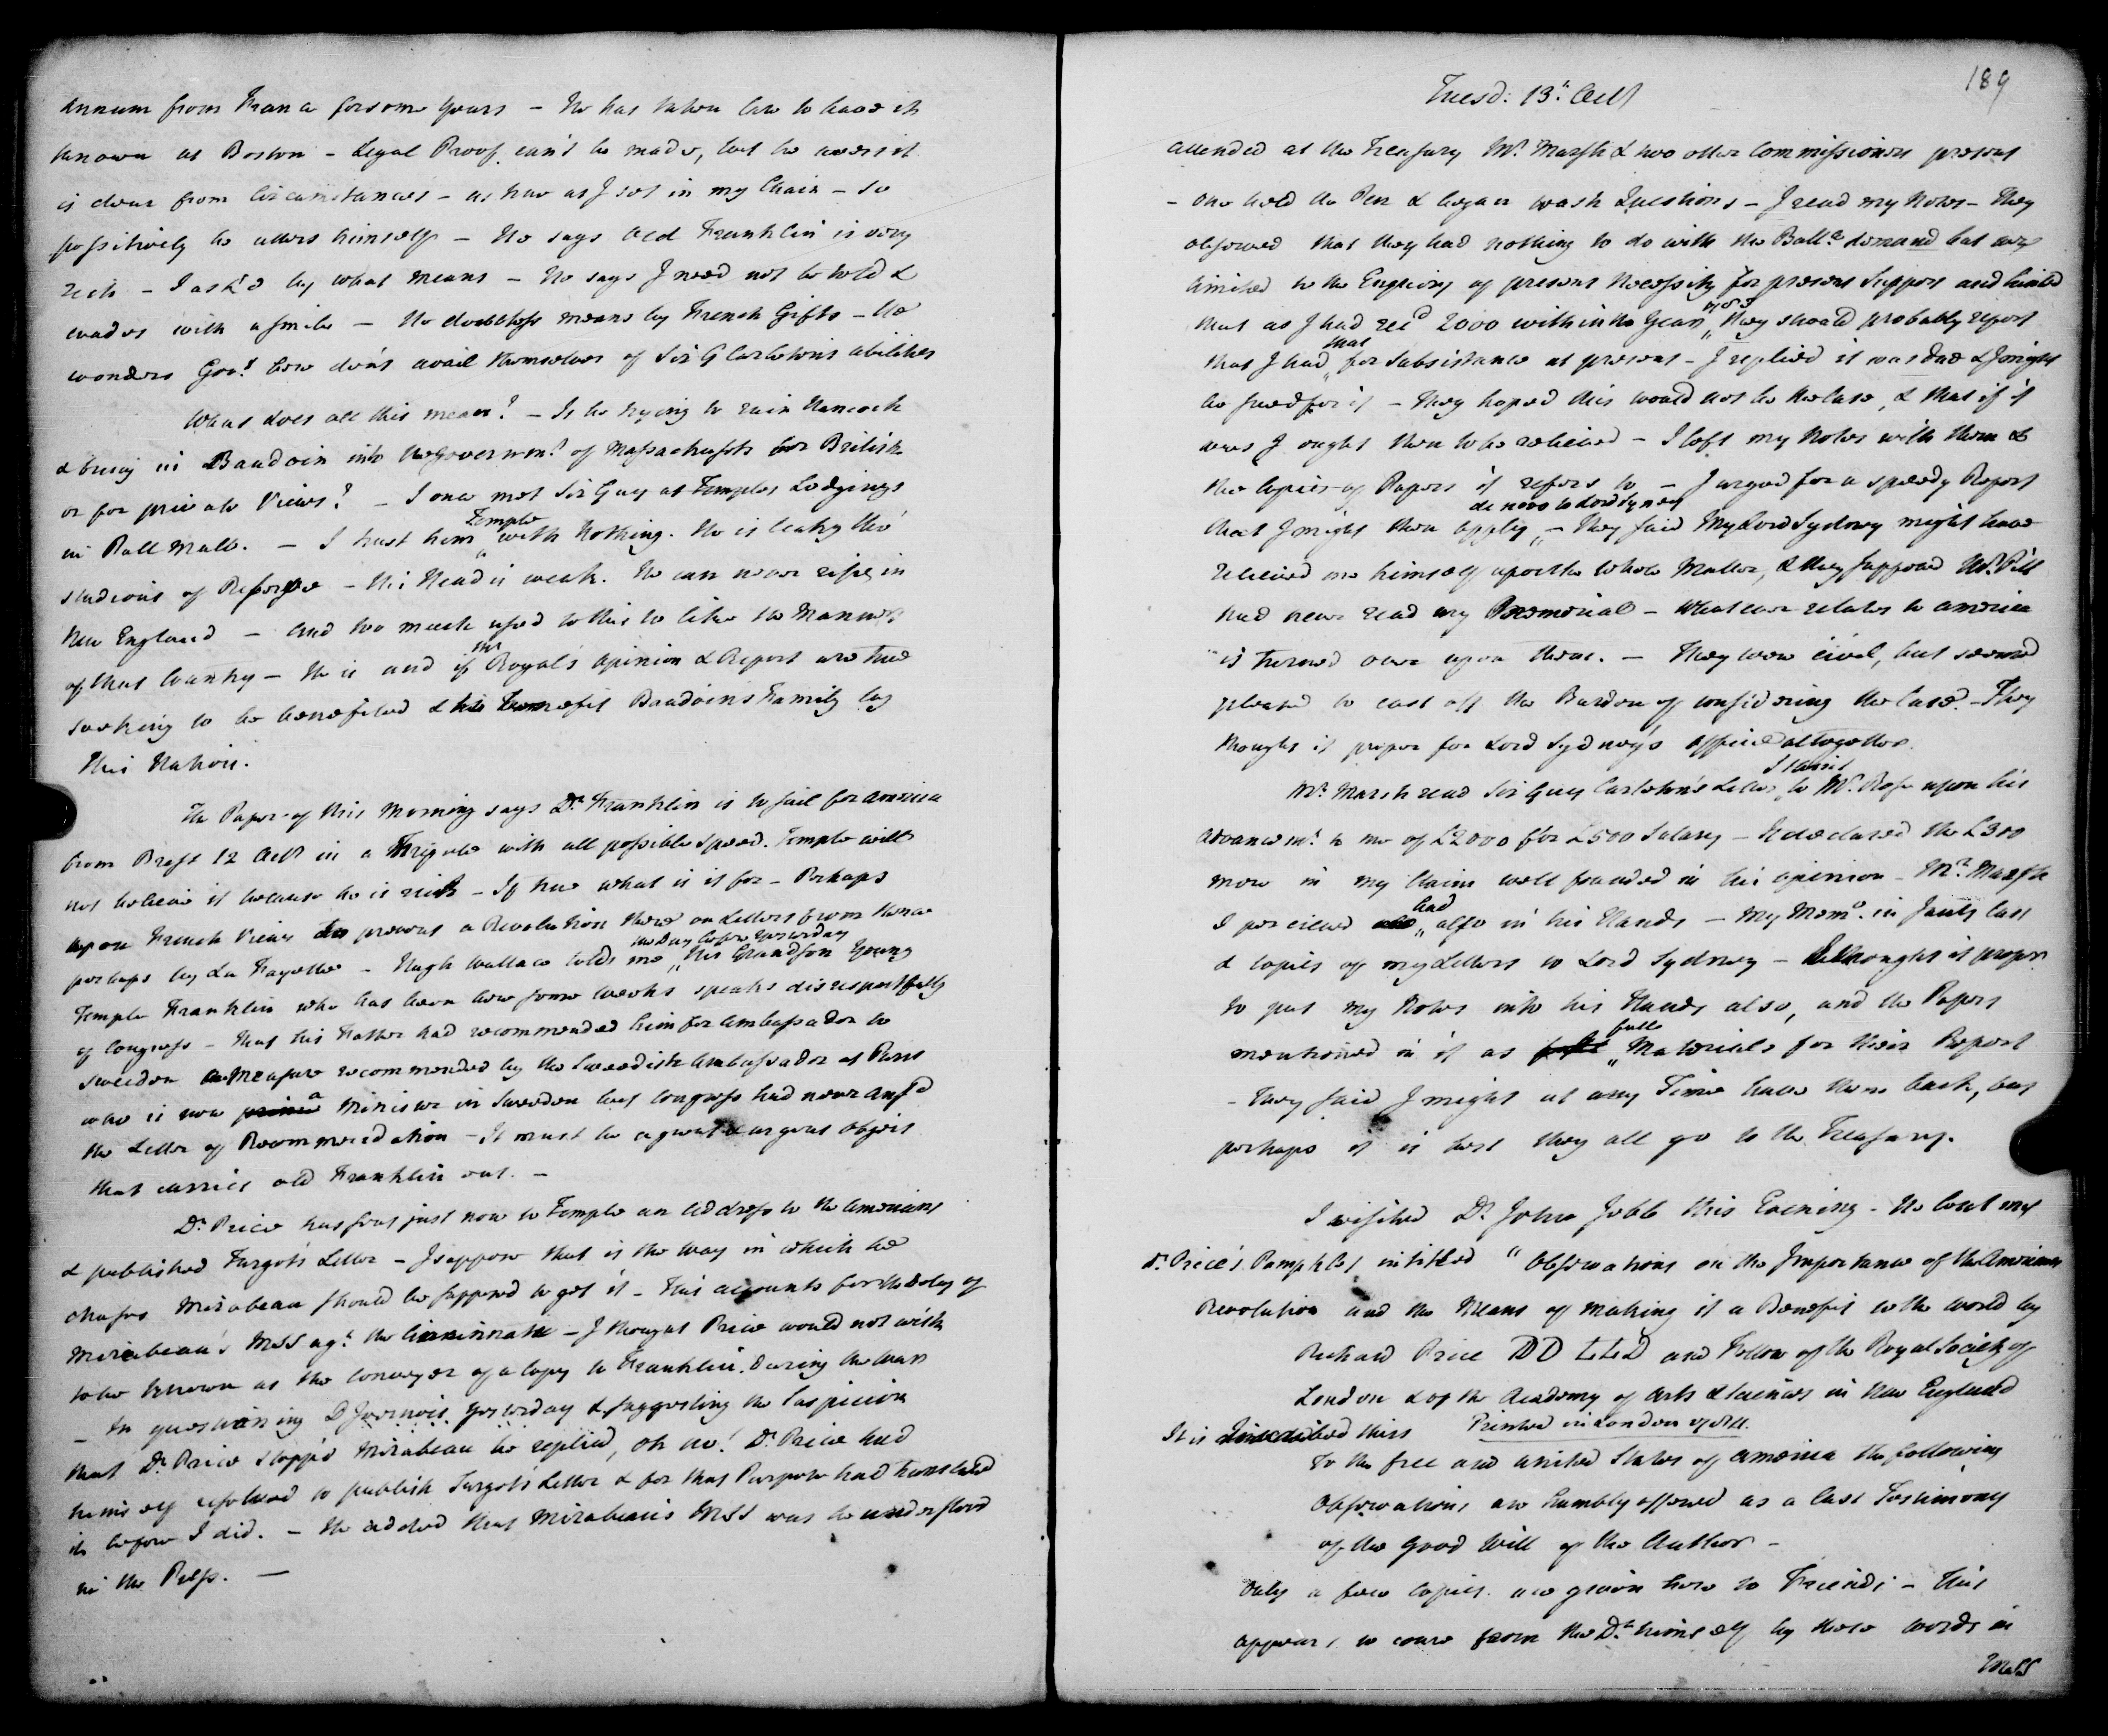 annum from France for some years – He has taken Care to have it
known at Boston – Legal Proof can't be made, but he avers it
is clear from Circumstances – as true as I set in my Chair – so
possitively he utters himself – He says Old Franklin is very
rich – I ask'd by what means – He says I need not be told &
evades with a smile – He doubtless means by French Gifts – He
wonders Gov.t here don't avail themselves of Sir G Carletons abilities
What does all this mean? – Is he trying to ruin Hancock
& bring in Baudoin into the Governm.t of Massachusetts for British
or for private Views? – I once met Sir Guy at Temples Lodgings
in Pall Mall. – I trust him Temple with Nothing. He is leaky tho'
studious of Reserve – His Head is weak. He can never rise in
New England – and too much used to this to like the Manners
of that Country – He is and if Mr Royal's Opinion & Report are true
seeking to be benefited & to benefit Baudoin's Family by
this Nation.
The Paper of this Morning says D.r Franklin is to sail for America
from Brest 12 Oct.r in a Frigate with all possible Speed. Temple will
not believe it because he is rich – If true what is it for – Perhaps
upon French Views to prevent a Revolution there on Letters from thence
perhaps by La Fayette – Hugh Wallace told me the Day before Yesterday His Grandson Young
Temple Franklin who has been here some weeks speaks disrespectfully
of Congress – That his Father had recommended him for Ambassador to
Sweeden a Measure recommended by the Sweedish Ambassador at Paris
who is now a Minister in Sweeden but Congress had never ans.d
the Letter of Recommendation – It must be a great & urgent Object
that carries old Franklin out. –
D.r Price has sent just now to Temple an Address to the Americans
& published Turgot's Letter – I suppose that is the way in which he
chuses Mirabeau should be supposed to get it – This accounts for the Delay of
Mirabeau's MSS ag.t the Cincinnati – I thought Price would not wish
to be known as the Conveyer of a Copy to Franklin during the War
– In questioning D'Ivernois yesterday & suggesting the Suspicion
that D.r Price stopp'd Mirabeau he replied, oh no! D.r Price had
himself resolved to publish Turgots Letter & for that Purpose had translated
it before I did. – He added that Mirabeau's MSS was he understood
in the Press. –
189
Tuesd: 13.t Oct.r
attended at the Treasury M.r Marsh & two other Commissioners present
– One held the Pen & began to ask Questions – I read my Notes – They
observed that they had nothing to do with the Ball.ce demand but were
limited to the Enquiry of present Necessity for present Support and hinted
that as I had rec.d 2000 within the Year they should probably report
that I had that for Subsistance at present – I replied it was due & I might
be sued for it – They hoped this would not be the Case, & that if it
were I ought then to be relieved – I left my Notes with them &
the Copies of Papers it refers to – I urged for a speedy Report
that I might then apply de novo to Lord Sydney – They said My Lord Sydney might have
relieved me himself upon the whole Matter, & they supposed M.r Pitt
had never read my Memorial – Whatever relates to America
is turned over upon them. – They were civil, but seemed
pleased to cast off the Burden of considering the Case. – They
thought it proper for Lord Sydney's Office altogether.
M.r Marsh read Sir Guy Carleton's Letter to M.r Rose upon his
advancem.t to me of £2000 for £500 Salary – It declared the £300
more in my Claim well founded in his opinion – M.r Marsh
I perceived had also in his Hands – My Mem.o in July last
& Copies of my Letters to Lord Sydney – I thought it proper
to put my Notes into his Hands also, and the Papers
mentioned in it as full Materials for their Report
– They said I might at any Time have them back, but
perhaps it is best they all go to the Treasury.
I visited D.r John Jebb this Evening – He lent me
D.r Price's Pamphlet intitled "Observations on the Importance of the American
Revolution and the Means of making it a Benefit to the World by
Richard Price DD LLD and Fellow of the Royal Society of
London & of the Academy of Arts & Sciences in New England
Printed in London 1784.
It is Inscribed thus
To the free and united States of America the following
Observations are humbly offered as a last Testimony
of the good Will of the Author –
Only a few Copies are given here to Friends – This
appears to come from the D.r himself by these words in
MSS